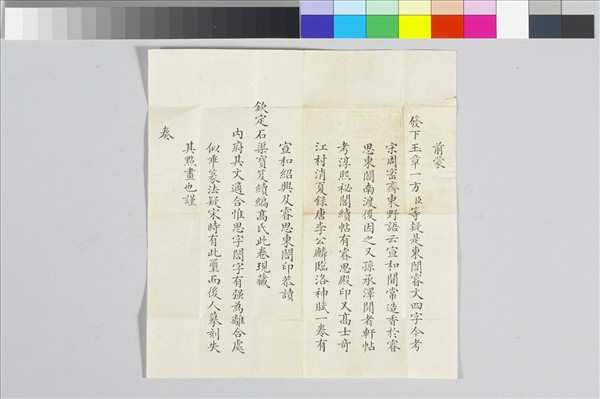 前蒙
發下玉章一方臣等疑是東閣睿文四字今考
宋周密齊東野語云宣和間常造香於睿
思東閣南渡後因之又孫承澤閒者軒帖
考淳熙秘閣續帖有睿思殿印又髙士奇
江村消夏錄唐李公麟臨洛神賦一卷有
宣和紹興及睿思東閣印恭讀
欽定石渠寶笈續編髙氏此卷現藏
內府其文適合惟思字閣字有强為離合處
似乖篆法疑宋時有此璽而後人摹刻失
其㸃畫也謹
奏